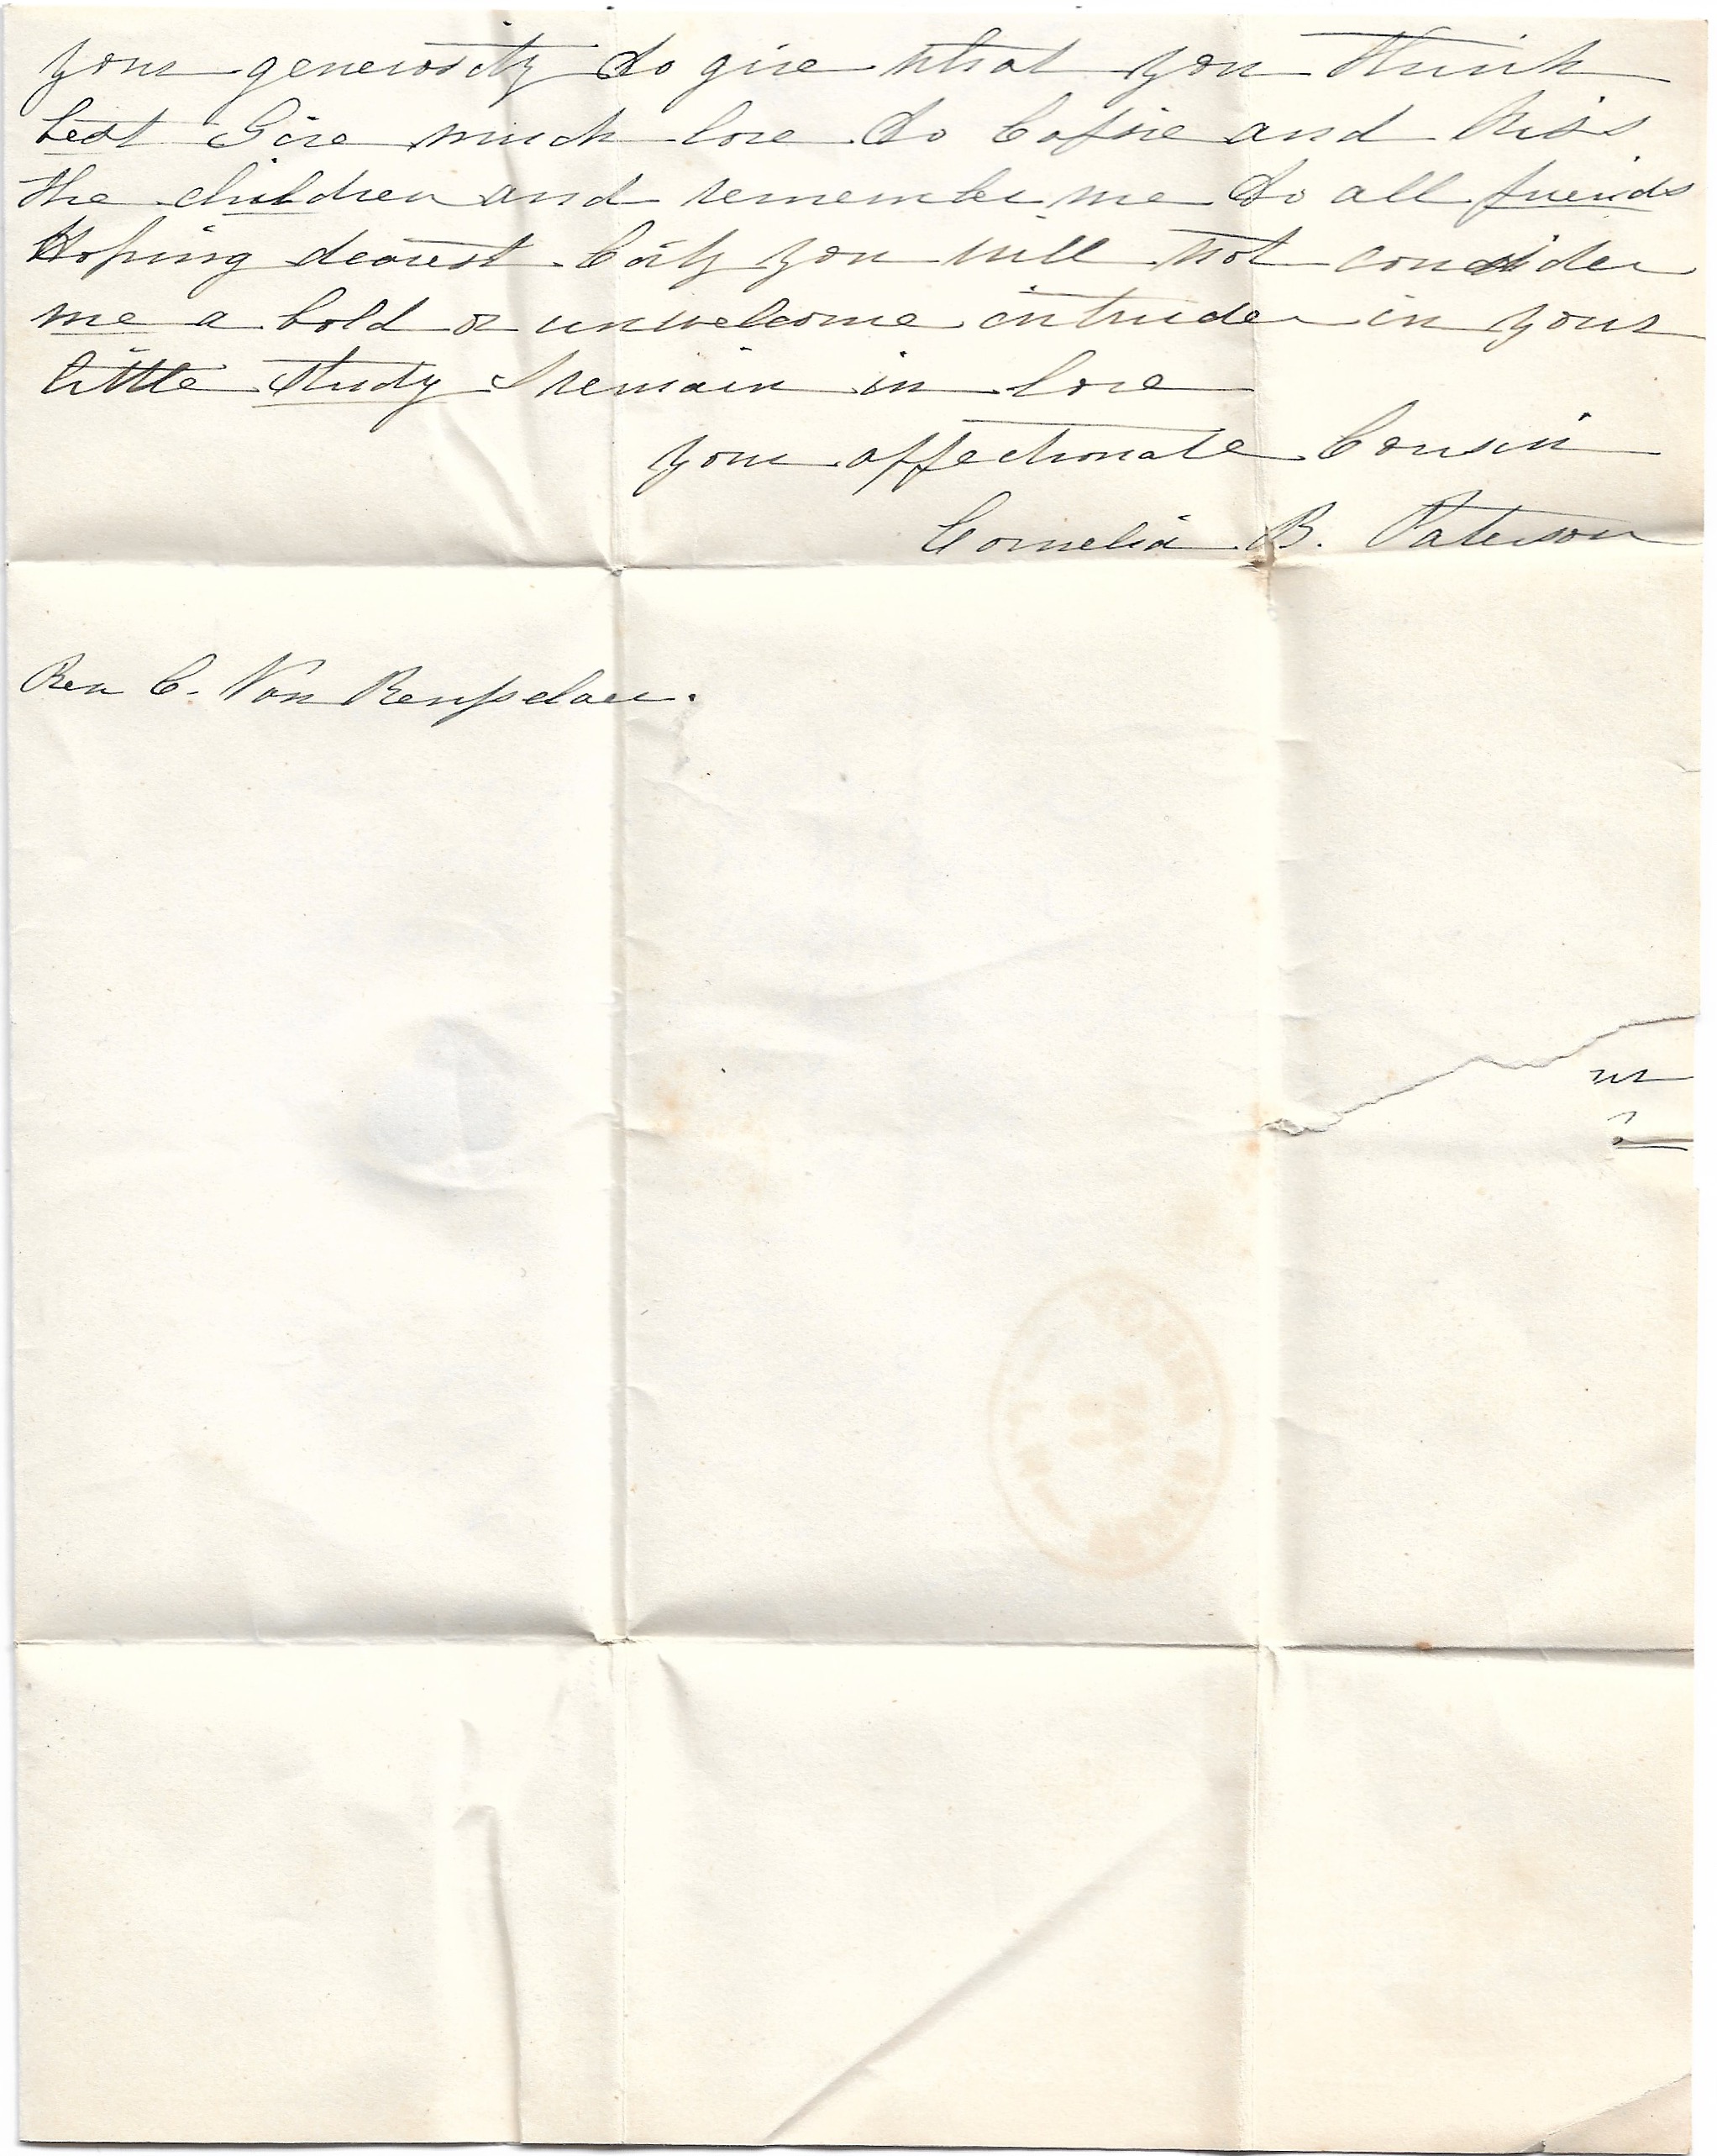 your generosity to give what you think
best Give much love to Cottie and kiss
the children and remember me to all friends
Hoping dearest Corty you will not consider
me a bold or unwelcome intruder in your
little study I remain in love
your affectionate Cousin
Cornelia B. Paterson
Rev C. Van Rensselaer.